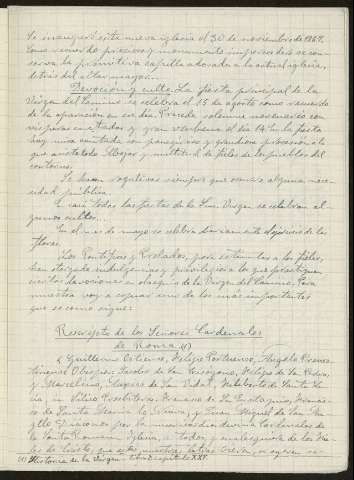 Se inauguró esta nueva iglesia el 30 de noviembre de 1867.
Como recuerdo precioso y monumento imperecedero se con-
serva la primitiva capilla adosada a la actual iglesia,
detrás del altar mayor.
Devoción y culto. La fiesta principal de la
Virgen del Camino se celebra el 15 de agosto como recuerdo
de la aparición en ese día. Precede solemne novenario con
vísperas cantadas y gran verbena el día 14. En la fiesta
hay misa cantada con panegírico y grandiosa procesión a la
que asiste todo y multitud de fieles de los pueblos del
contorno.
Se hacen rogativas siempre que ocurre alguna nece-
sidad pública.
En casi todas las fiestas de la Sma. Virgen se celebran al-
gunos cultos...
En el mes de mayo se celebra diariamente el ejercicio de las
flores.
Los Pontífices y Prelados, para estimular a los fieles,
han otorgado indulgencias y privilegios a los que practiquen
ciertas devociones en obsequio de la Virgen del Camino. Para
muestra voy a copiar uno de los más importantes
que es como sigue:
Rescripto de los Señores Cardenales
de Roma (1)
"Guillermo Felipe Portuense, Angelo
Obispos; de San Felipe de San Pedro,
y Marcelino, de San Vidal, de Santa
in Presbíteros; de San Eustaquio,
de Santa María la Nueva, y Juan Miguel de San
Diáconos por la misericordia divina Cardenales de
la Santa Romana Iglesia, a todos y cualesquiera de los fie-
les de Cristo, que estas nuestras letras
(1) Historia de la Virgen capítulo XXV.